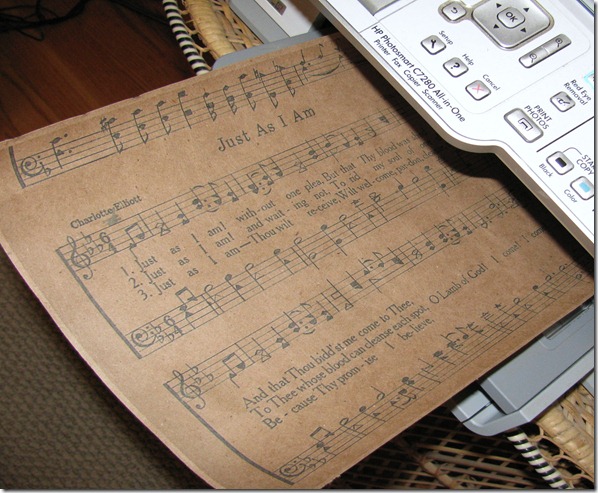 OK
Setup
Help
Cancel
HP Photosmart C7280 All-in-One
Printer Fax Copier Scanner
Red Eye
Removal
PRINT
PHOTOS
START
COPY
Black
Color
Just As I Am
Charlotte Elliott
1. Just as I am! with-out one plea, But that Thy blood was
2. Just as I am! and wait-ing not, To rid my soul
3. Just as I am—Thou wilt re-ceive, Wilt wel-come, pardon,
And that Thou bidd'st me come to Thee, O Lamb of God! I come! I come!
To Thee whose blood can cleanse each spot,
Be-cause Thy prom-ise I be-lieve,